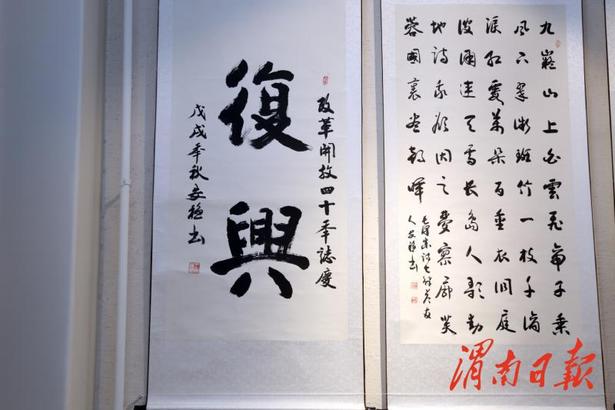 九嶷山上白雲飛帝子乘
風下翠微斑竹一枝千滴
淚紅霞萬朵百重衣洞庭
波涌連天雪長島人歌動
地詩我欲因之夢寥廓芙
蓉國裏盡朝暉
毛澤東詩七律答友
改革開放四十年誌慶
復興
戊戌年秋
渭南日报